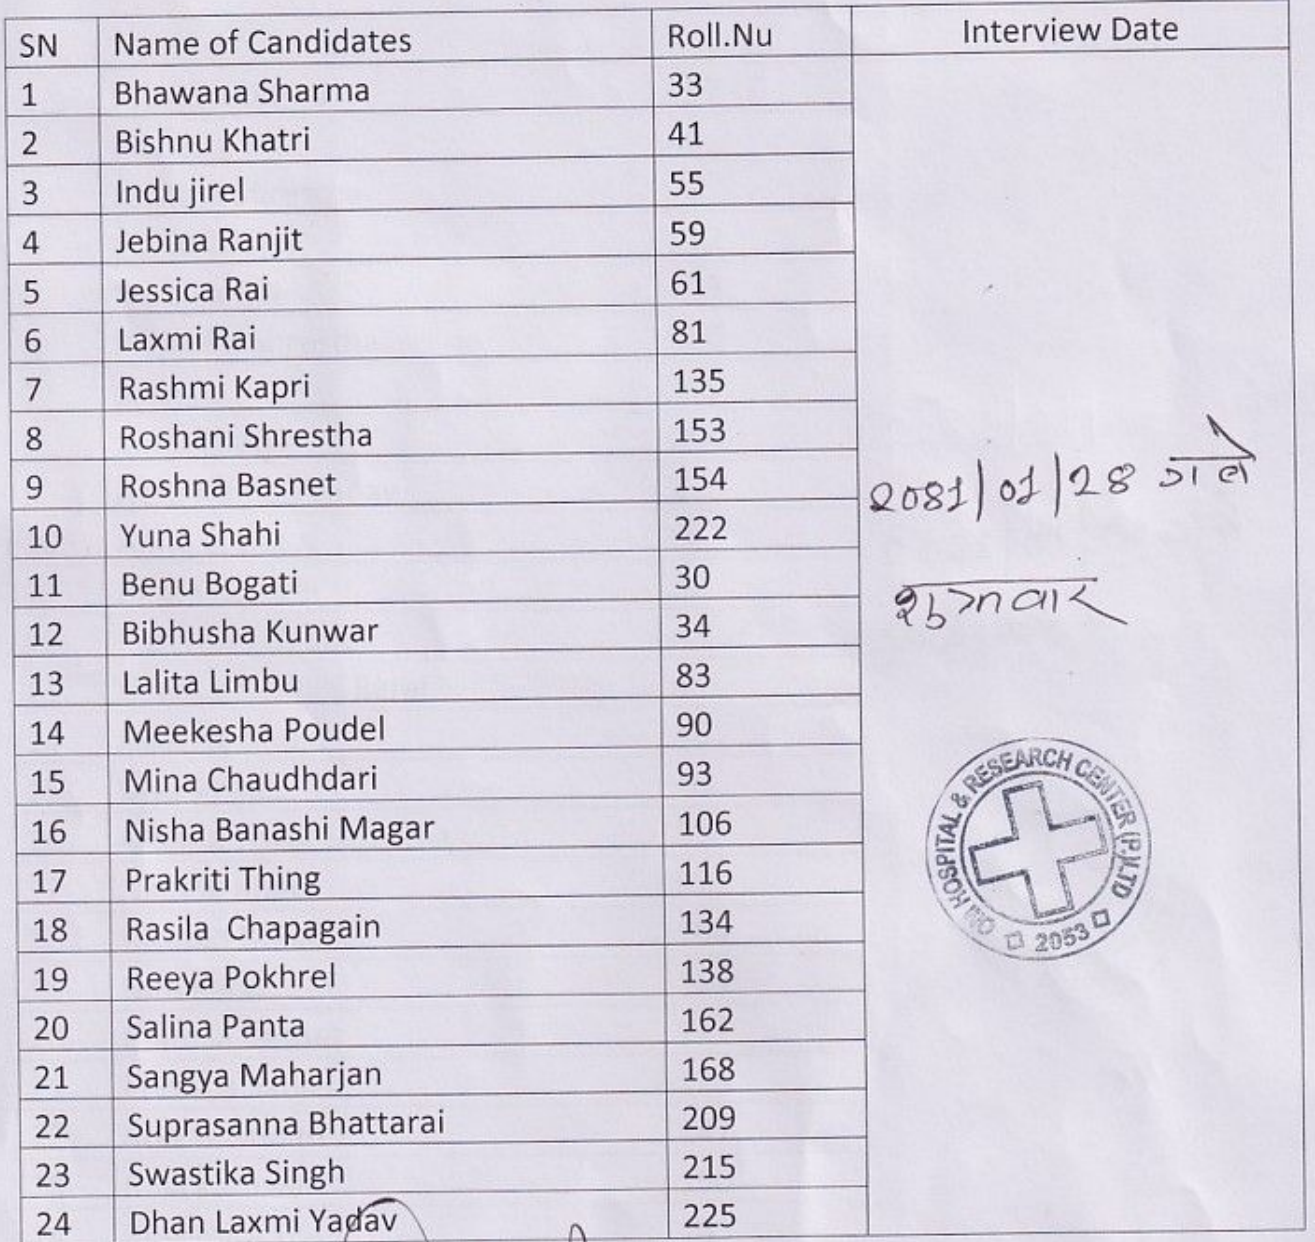 SN Name of Candidates Roll.Nu Interview Date
1 Bhawana Sharma 33
2 Bishnu Khatri 41
3 Indu jirel 55
4 Jebina Ranjit 59
5 Jessica Rai 61
6 Laxmi Rai 81
7 Rashmi Kapri 135
8 Roshani Shrestha 153
9 Roshna Basnet 154
2081/01/28 गते
10 Yuna Shahi 222
11 Benu Bogati 30
शुक्रवार
12 Bibhusha Kunwar 34
13 Lalita Limbu 83
14 Meekesha Poudel 90
15 Mina Chaudhdari 93
16 Nisha Banashi Magar 106
17 Prakriti Thing 116
18 Rasila Chapagain 134
19 Reeya Pokhrel 138
20 Salina Panta 162
21 Sangya Maharjan 168
22 Suprasanna Bhattarai 209
23 Swastika Singh 215
24 Dhan Laxmi Yadav 225
OM HOSPITAL & RESEARCH CENTER (P.)LTD
2053